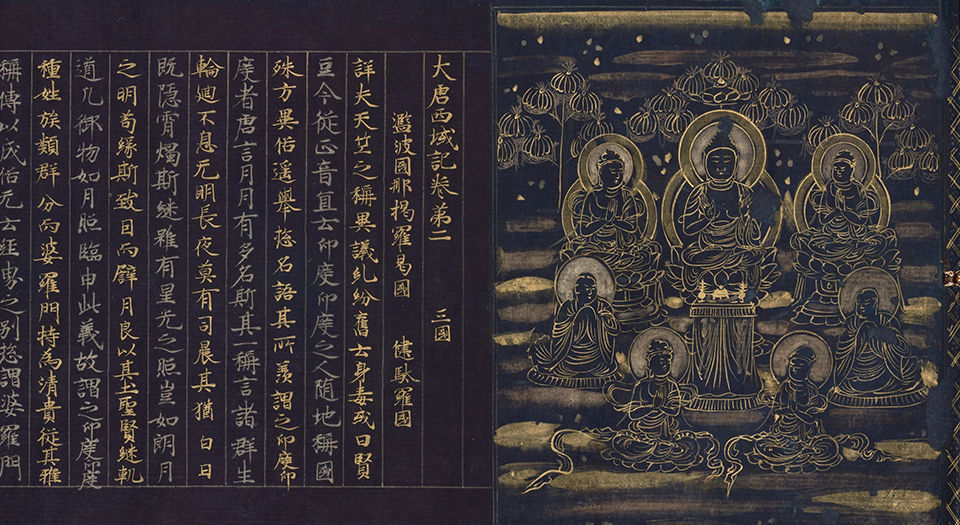 大唐西域記卷第二 三國
濫波國那揭羅曷國 健馱羅國
詳夫天竺之稱異議糺紛舊云身毒或曰賢
豆今從正音宜云印度印度之人隨地稱國
殊方異俗遥舉惣名語其所羡謂之印度印
度者唐言月月有多名斯其一稱言諸群生
輪迴不息无明長夜莫有司晨其猶白日
既隱霄燭斯継雖有星光之照豈如朗月
之明苟緣斯致因而譬月良以其土聖賢継軌
道凡御物如月照臨由此義故謂之印〻度〻
種姓族類群分而婆羅門特為清貴從其雅
稱傳以成俗无云經界之別惣謂婆羅門